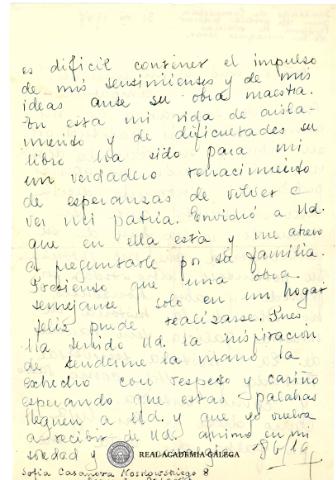 es difícil contener el impulso
de mis sentimientos y de mis
ideas ante su obra maestra.
En esta mi vida de aisla-
miento y de dificultades su
libro ha sido para mi
un verdadero renacimiento
de esperanzas de volver a
ver mi patria. Envidio a Ud.
que en ella está y me atrevo
a preguntarle por su familia.
Presiento que una obra
semejante solo en un hogar
feliz puede realizarse. Pues
ha tenido Ud. la inspiración
de tenderme la mano la
estrecho con respeto y cariño
esperando que estas palabras
lleguen a Ud. y que yo vuelva
a recibir de Ud. animo en mi
soledad y
REAL ACADEMIA GALEGA
Sofía Casanova Noskowskiego 8